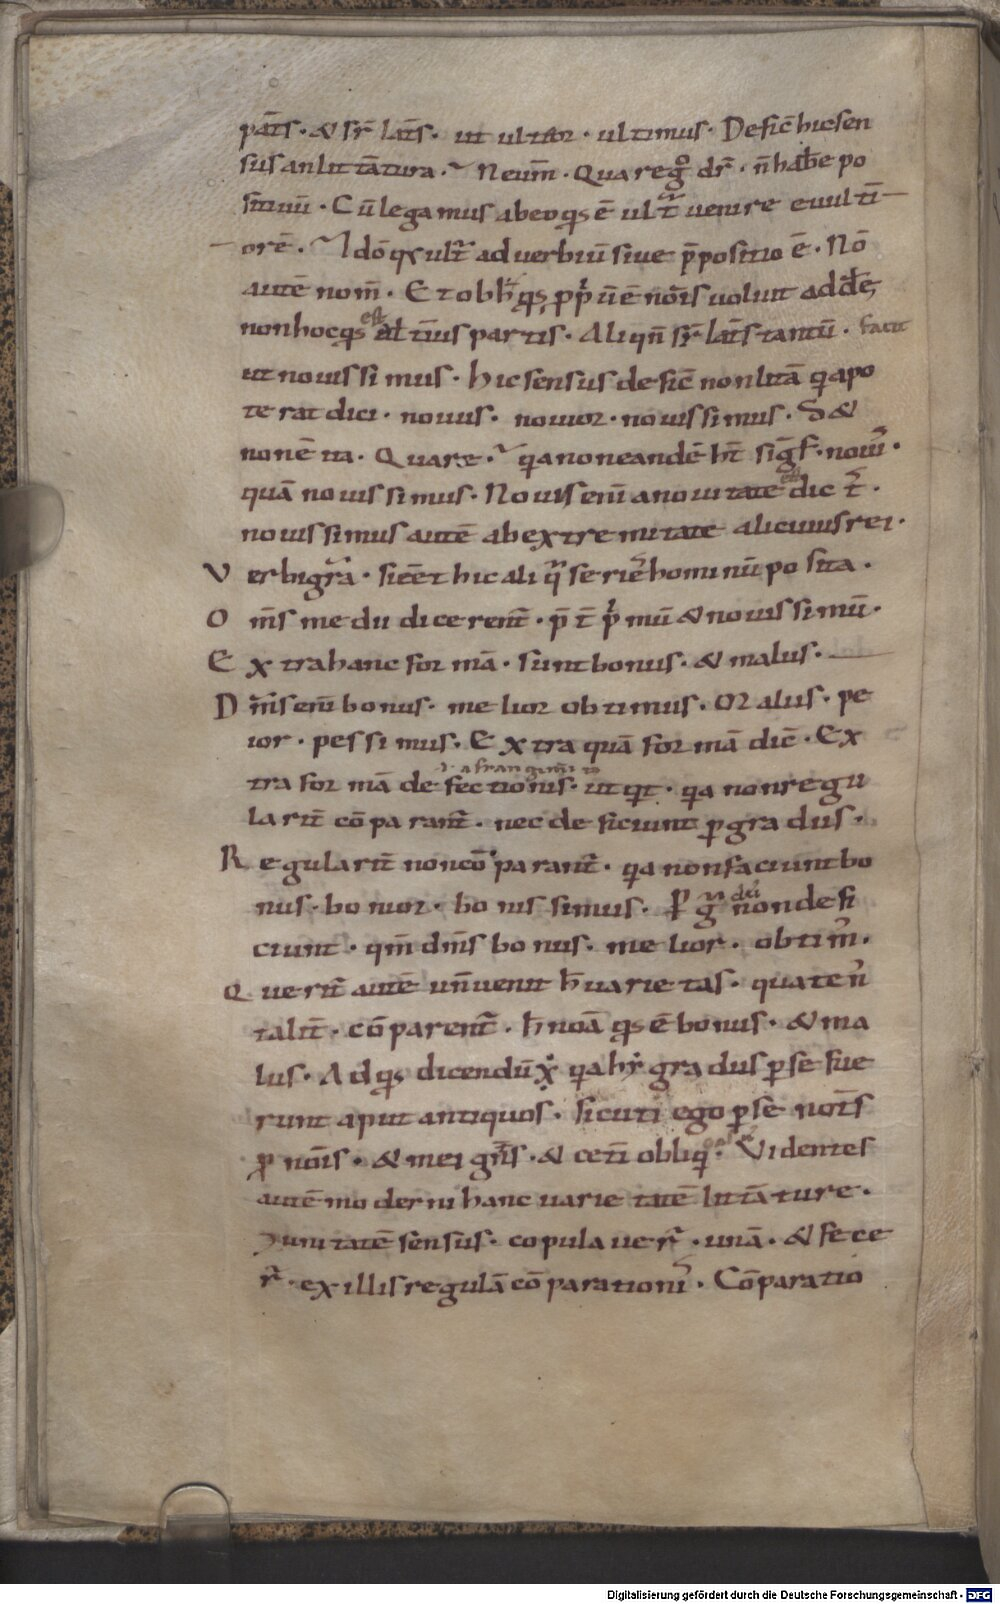 pat̄s · & sr̄ lat̄s · ut ultior · ultimus · Defic̄ hic sen
sus an litt̄atura · Neum̄ · Qua reg̊ dr̄ · n̄ hab̄e po
sitiuū · Cū legamus ab eo qs ē ult̄ uenire e uulti
orē · Idō qs ult̄ aduerbiū siue p̄positio ē · Nō
autē nom̄ · Et ob h̄ qs pp̄ uē noīs uoluit adde
non hoc qs est alt̄ius partis · Aliqn̄ sr̄ lat̄s tantū · facit
ut nouissimus · hic sensus defic̄ non litt̄a qa po
terat dici · nouus · nouior · nouissimus · S &
non ē ita · Quare · qa non eandē ht̄ sigf̄ · nouꝰ ·
quā nouissimus · Nouus enī a nouitate est dict̄ ·
nouissimus autē ab extremitate alicuius rei ·
Verbi gr̄a · si eēt hic aliq̄ series hominū posita ·
Om̄s medii dicerent̄ · p̄t̄ p̄mū & nouissimū ·
Extra hanc formā · sunt bonus · & malus ·
Dm̄s enī bonus · melior obtimus · Malus · pe
ior · pessimus · Extra quā formā dic̄ · Ex
a frangim̄
tra formā defectionis · ut qt · qa non regu
larit̄ cōparant̄ · nec deficiunt p gradus ·
Regularit̄ non cōparant̄ · qa non faciunt bo
nus · bonior · bonissimus · P g̊dꝰ non defi
ciunt · qm̄ dm̄s bonus · melior · obtimꝰ ·
Querit̄ autē un̄ uenit h̄ uarietas · qua tenꝰ
talit̄ · cōparent̄ · h̄ noā qs ē bonus · & ma
lus · Ad qs dicendū x̄ qa hi gradus p se fue
runt aput antiquos · sicuti ego p se noīs
p noīs · & mei gn̄s · & cet̄i obliq · Videntes
autē moderni hanc uarietatē litt̄ature ·
unitatē sensus · copulauer̄ · unā · & fece
r̄ · ex illis regulā cōparationis · Cōparatio
Digitalisierung gefördert durch die Deutsche Forschungsgemeinschaft - DFG